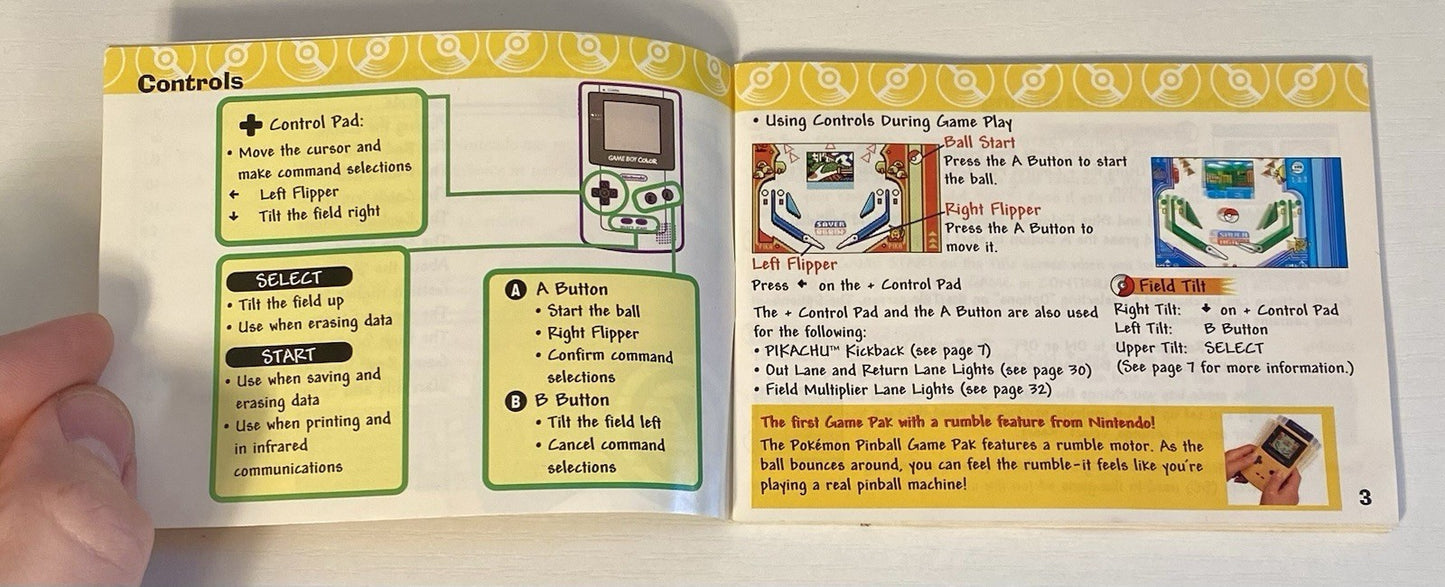 Controls
Control Pad:
• Move the cursor and
make command selections
← Left Flipper
↓ Tilt the field right
SELECT
• Tilt the field up
• Use when erasing data
START
• Use when saving and
erasing data
• Use when printing and
in infrared
communications
GAME BOY COLOR
Nintendo
A A Button
• Start the ball
• Right Flipper
• Confirm command
selections
B B Button
• Tilt the field left
• Cancel command
selections
• Using Controls During Game Play
Ball Start
Press the A Button to start
the ball.
Right Flipper
Press the A Button to
move it.
SAVER
Left Flipper
Press ← on the + Control Pad
The + Control Pad and the A Button are also used
for the following:
• PIKACHU™ Kickback (see page 7)
• Out Lane and Return Lane Lights (see page 30)
• Field Multiplier Lane Lights (see page 32)
SAVER
Field Tilt
Right Tilt: ↓ on + Control Pad
Left Tilt: B Button
Upper Tilt: SELECT
(See page 7 for more information.)
The first Game Pak with a rumble feature from Nintendo!
The Pokémon Pinball Game Pak features a rumble motor. As the
ball bounces around, you can feel the rumble–it feels like you're
playing a real pinball machine!
3